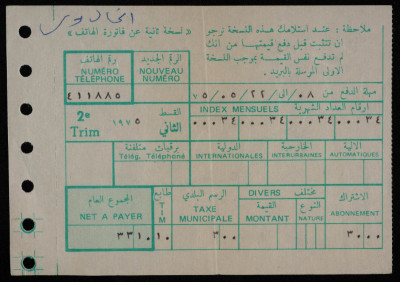 ملاحظة : عند استلامك هذه النسخة نرجو
ان تتثبت قبل دفع قيمتها من انك
لم تدفع نفس القيمة بموجب النسخة
الاولى المرسلة بالبريد .
« نسخة ثانية عن فاتورة الهاتف »
رقم الهاتف
NUMÉRO TÉLÉPHONE
الرقم الجديد
NOUVEAU NUMÉRO
٤١١٨٨٥
مهلة الدفع من ٠٨/ ٢٢/٠٥/٧٥
2º Trim
١٩٧٥
القسط الثاني
INDEX MENSUELS
ارقام العداد الشهرية
٠٠٠٣٤ ٠٠٠٣٤ ٠٠٠٣٤ ٠٠٠٣٤
برقيات متلفنة
Télég. Téléphoné
الدولية
INTERNATIONALES
الخارجية
INTERURBAINES
الالية
AUTOMATIQUES
المجموع العام
NET A PAYER
طابع
TIM
الرسم البلدي
TAXE MUNICIPALE
DIVERS مختلف
القيمة
MONTANT
النوع
NATURE
الاشتراك
ABONNEMENT
٣٣١٠ ١٠ ٣٠٠ ٣٠٠٠